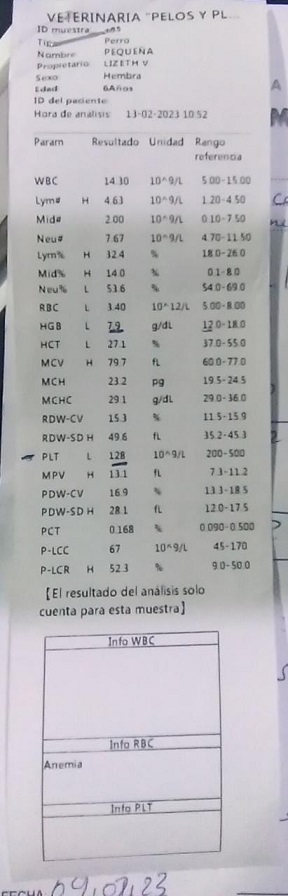 VETERINARIA "PELOS Y PL...
ID muestra
Tipo Perro
Nombre PEQUEÑA
Propietario LIZETH V
Sexo Hembra
Edad 6Años
ID del paciente
Hora de análisis 13-02-2023 10:52
Param Resultado Unidad Rango
referencia
WBC 14.30 10^9/L 5.00-15.00
Lym# H 4.63 10^9/L 1.20-4.50
Mid# 2.00 10^9/L 0.10-7.50
Neu# 7.67 10^9/L 4.70-11.50
Lym% H 32.4 % 18.0-26.0
Mid% H 14.0 % 0.1-8.0
Neu% L 53.6 % 54.0-69.0
RBC L 3.40 10^12/L 5.00-8.00
HGB L 7.9 g/dL 12.0-18.0
HCT L 27.1 % 37.0-55.0
MCV H 79.7 fL 60.0-77.0
MCH 23.2 pg 19.5-24.5
MCHC 29.1 g/dL 29.0-36.0
RDW-CV 15.3 % 11.5-15.9
RDW-SD H 49.6 fL 35.2-45.3
PLT L 128 10^9/L 200-500
MPV H 13.1 fL 7.3-11.2
PDW-CV 16.9 % 13.3-18.5
PDW-SD H 28.1 fL 12.0-17.5
PCT 0.168 % 0.090-0.500
P-LCC 67 10^9/L 45-170
P-LCR H 52.3 % 9.0-50.0
【El resultado del análisis solo
cuenta para esta muestra】
Info WBC
Info RBC
Anemia
Info PLT
FECHA